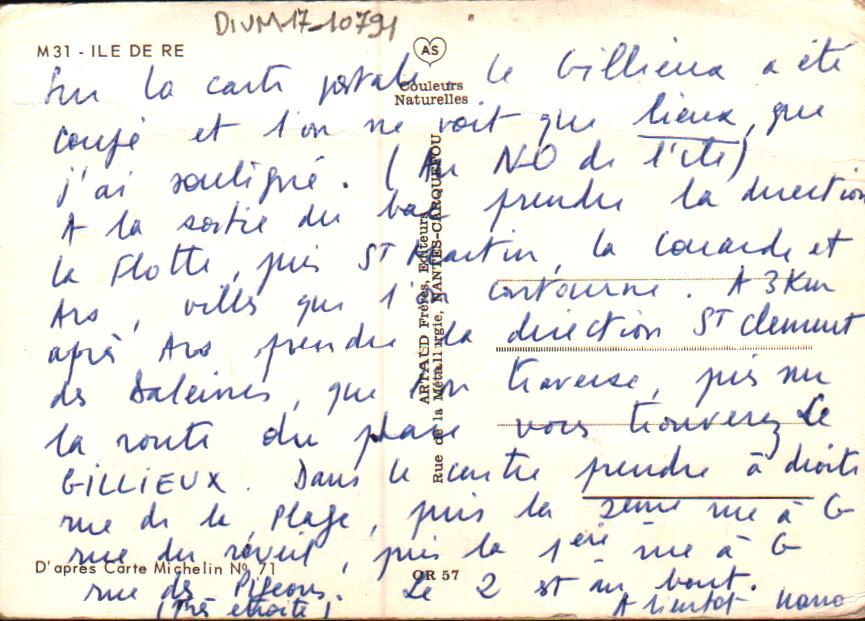 DIVM17-10791
M 31 - ILE DE RE
AS
Couleurs
Naturelles
Sur la carte postale le Gillieux a été
coupé et l'on ne voit que lieux, que
j'ai souligné. (Au NO de l'île)
A la sortie du bac prendre la direction
la Flotte, puis St Martin, la Couarde et
Ars, villes que l'on contourne. A 3 Km
après Ars prendre la direction St Clement
des Baleines, que l'on traverse, puis sur
la route du phare vous trouverez Le
GILLIEUX. Dans le centre prendre à droite
rue de la Plage, puis la 2eme rue à G
rue du réveil, puis la 1ère rue à G
rue des Pigeons. Le 2 est au bout.
(Très étroite)
A bientôt
ARTAUD Frères, Editeurs
Rue de la Métallurgie, NANTES-CARQUEFOU
D'après Carte Michelin Nº 71
OR 57